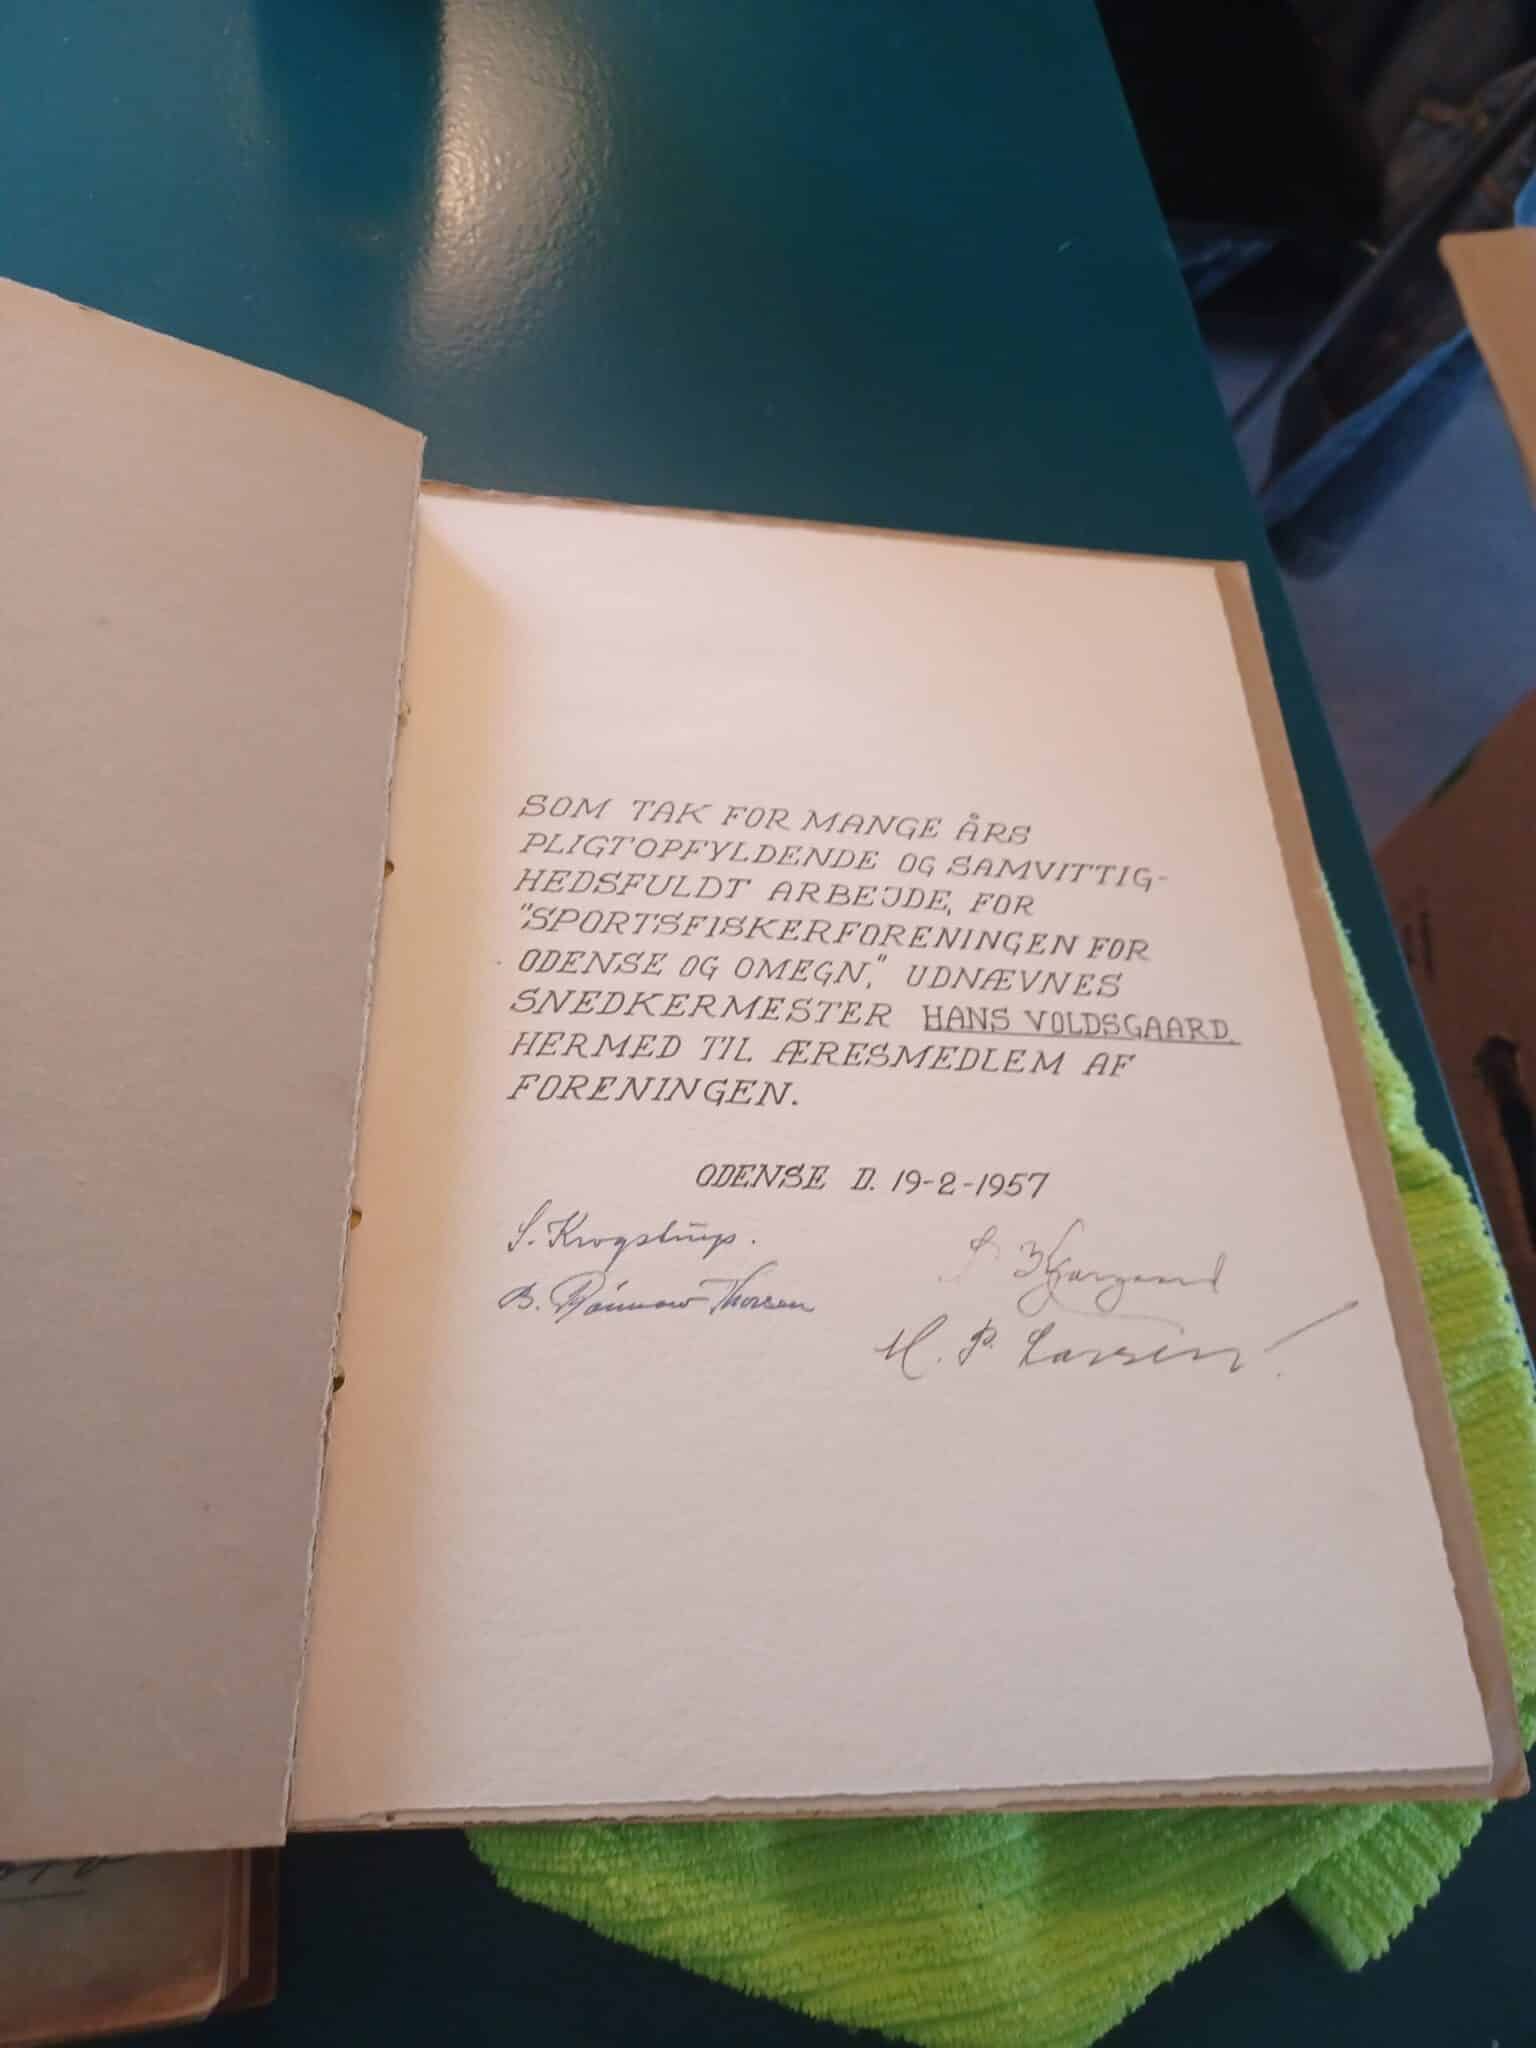 SOM TAK FOR MANGE ÅRS
PLIGTOPFYLDENDE OG SAMVITTIG-
HEDSFULDT ARBEJDE, FOR
"SPORTSFISKERFORENINGEN FOR
ODENSE OG OMEGN," UDNÆVNES
SNEDKERMESTER HANS VOLDSGAARD.
HERMED TIL ÆRESMEDLEM AF
FORENINGEN.
ODENSE D. 19-2-1957
S. Krogstrup.
B. Thorsen
H. P. Larsen.